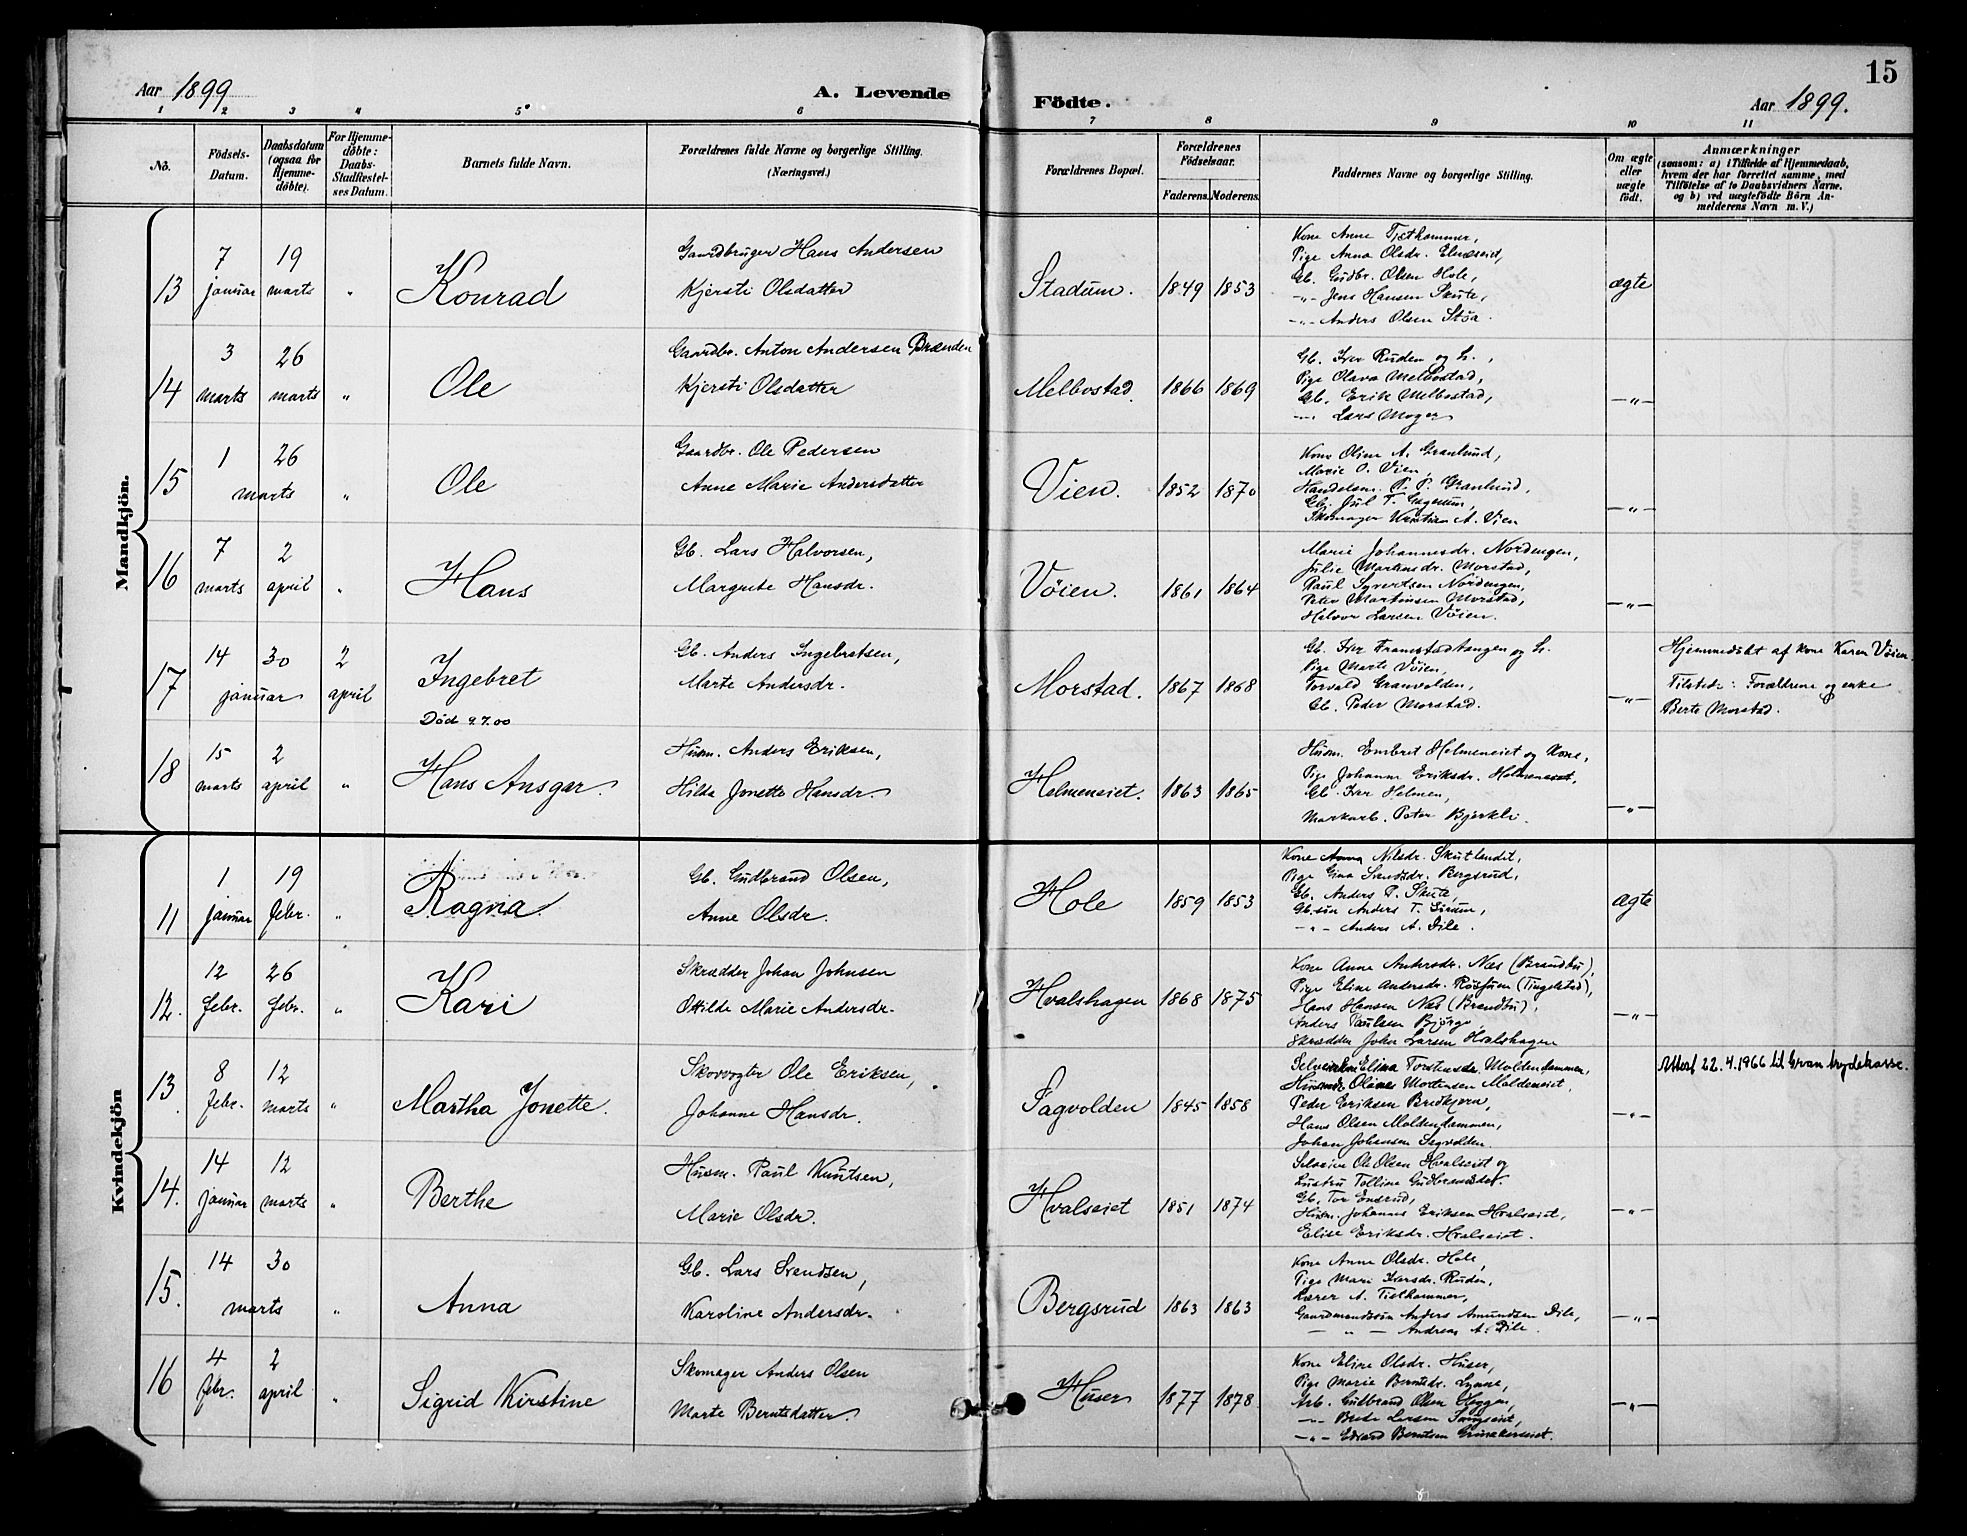 15
Aar 1899
A. Levende
Födte.
Aar 1899.
1 2 3 4 5 6 7 8 9 10 11
No.
Födsels-
Datum.
Daabsdatum
(ogsaa for
Hjemme-
döbte).
For Hjemme-
döbte:
Daabs-
Stadfæstel-
ses Datum.
Barnets fulde Navn.
Forældrenes fulde Navne og borgerlige Stilling.
(Næringsvei.)
Forældrenes Bopæl.
Forældrenes
Födselsaar.
Faderens. Moderens.
Faddernes Navne og borgerlige Stilling.
Om ægte
eller
uægte
födt.
Anmærkninger
(saasom: a) i Tilfælde af Hjemmedaab,
hvem der har forrettet samme, med
Tilföielse af to Daabsvidners Navne,
og b) ved uægtefödte Börn An-
melderens Navn m. V.)
Mandkjön.
13
7 januar
19 marts
"
Konrad
Gaardbruger Hans Andersen
Kjersti Olsdatter
Stadum.
1849 1853
Kone Anne Tjethammer,
Pige Anna Olsdr. Elnæseiet,
Gb. Gudbr. Olsen Hole,
-"- Jens Hansen Skute,
-"- Anders Olsen Stöa.
ægte
14
3 marts
26 marts
"
Ole
Gaardbr. Anton Andersen Brænden
Kjersti Olsdatter
Melbostad.
1866 1869
Gb. Iver Ruden og h.,
Pige Olava Melbostad,
Gb. Erik Melbostad,
-"- Lars Moger
-"-
15
1 26
marts
"
Ole
Gaardbr. Ole Pedersen
Anne Marie Andersdatter
Vien.
1852 1870
Kone Oline A. Granlund,
Marie O. Vien,
Handelsm. P. P. Granlund,
Gb. Jul T. Gagnum,
Skomager Kristian A. Vien
-"-
16
7 marts
2 april
"
Hans
Gb. Lars Halvorsen,
Margrete Hansdr.
Vøien.
1861 1864
Marie Johannesdr. Nordengen,
Julie Martinsdr. Morstad,
Paul Syvertsen Nordengen,
Peter Martinsen Morstad,
Halvor Larsen Vøien.
-"-
17
14 30
januar
2 april
Ingebret
Død 9.7.00
Gb. Anders Ingebretsen,
Marte Andersdr.
Morstad.
1867 1868
Gb. Iver Framstadtangen og h.
Pige Marte Vøien,
Torvald Granvolden,
Gb. Peder Morstad.
-"-
Hjemmedøbt af kone Karen Vøien.
Tilstede: Forældrene og enke
Berte Morstad.
18
15 marts
2 april
"
Hans Ansgar.
Husm. Anders Eriksen,
Hilda Jonette Hansdr.
Helmeneiet.
1863 1865
Husm. Embret Helmeneiet og kone,
Pige Johanne Eriksdr. Helmeneiet,
Gb. Iver Helmen,
Markarb. Peter Bjerkli.
-"-
Kvindekjön
11
1 januar
19 febr.
"
Ragna.
Gb. Gudbrand Olsen,
Anne Olsdr.
Hole
1859 1853
Kone Anna Nilsdr. Skutlandet,
Pige Gina Svendsdr. Bergsrud,
Gb. Anders P. Skute,
Gb.søn Anders T. Sörum,
-"- Anders A. Dile.
ægte
12.
12 febr.
26 febr.
"
Kari
Skrædder Johan Johnsen
Ottilde Marie Andersdr.
Hvalshagen
1868 1875
Kone Anne Andersdr. Næs (Brandbu),
Pige Eline Andersdr. Røssuen (Tingelstad),
Hans Hansen Næs (Brandbu),
Anders Paulsen Bjørge,
Skrædder John Larsen Hvalshagen
-"-
13
8 febr.
12 marts
"
Martha Jonette.
Skovvogter Ole Eriksen,
Johanne Hansdr.
Sagvolden
1845 1858
Elina Torstensdr. Moldendammen,
Olines Mortensen Moldeneiet,
Peder Eriksen Bredkjern,
Hans Olsen Moldendammen,
Johan Johansen Sagvolden
-"-
Attest 22.4.1966 til Gran trygdekasse.
14.
14 januar
12 marts
"
Berthe
Husm. Paul Knutsen,
Marie Olsdr.
Hvalseiet
1851 1874
Selveier Ole Olsen Hvalseiet og
hustru Talline Gudbrandsdat.
Gb. Tor Ensrud,
Husm. Johannes Eriksen Hvalseiet,
Elise Eriksdr. Hvalseiet.
-"-
15.
14 30
marts
"
Anna
Gb. Lars Svendsen,
Karoline Andersdr.
Bergsrud
1863 1863
Kone Anne Olsdr. Hole,
Pige Mari Iversdr. Ruden,
Lærer A. Tjethammer,
Gaardmandssøn Anders Amundsen Dile,
- " - Andreas A. Dile.
-"-
16
4 febr.
2 april
"
Sigrid Kirstine
Skomager Anders Olsen
Marte Berntsdatter.
Huser
1877 1878.
Kone Eline Olsdr. Huser,
Pige Marie Berntsdr. Lynne,
Arb. Gudbrand Olsen Heggen,
-"- Larsen
-"- Edvard Berntsen Grinakereiet.
-"-